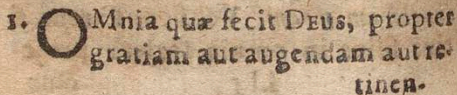 1. OMnia quæ fecit DEUS, propter
gratiam aut augendam aut re-
tinen-